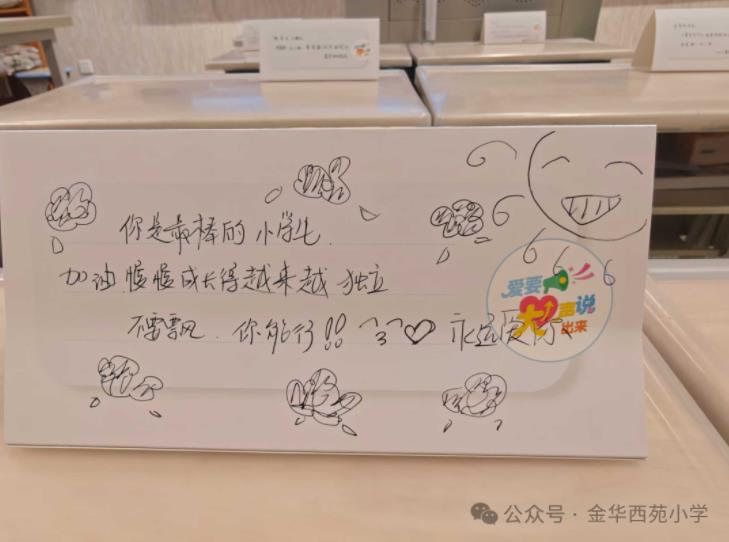 你是最棒的小学生.
加油 慢慢成长得越来越独立
不要飘. 你能行!! 永远爱你
爱要
大声说
出来
公众号 · 金华西苑小学